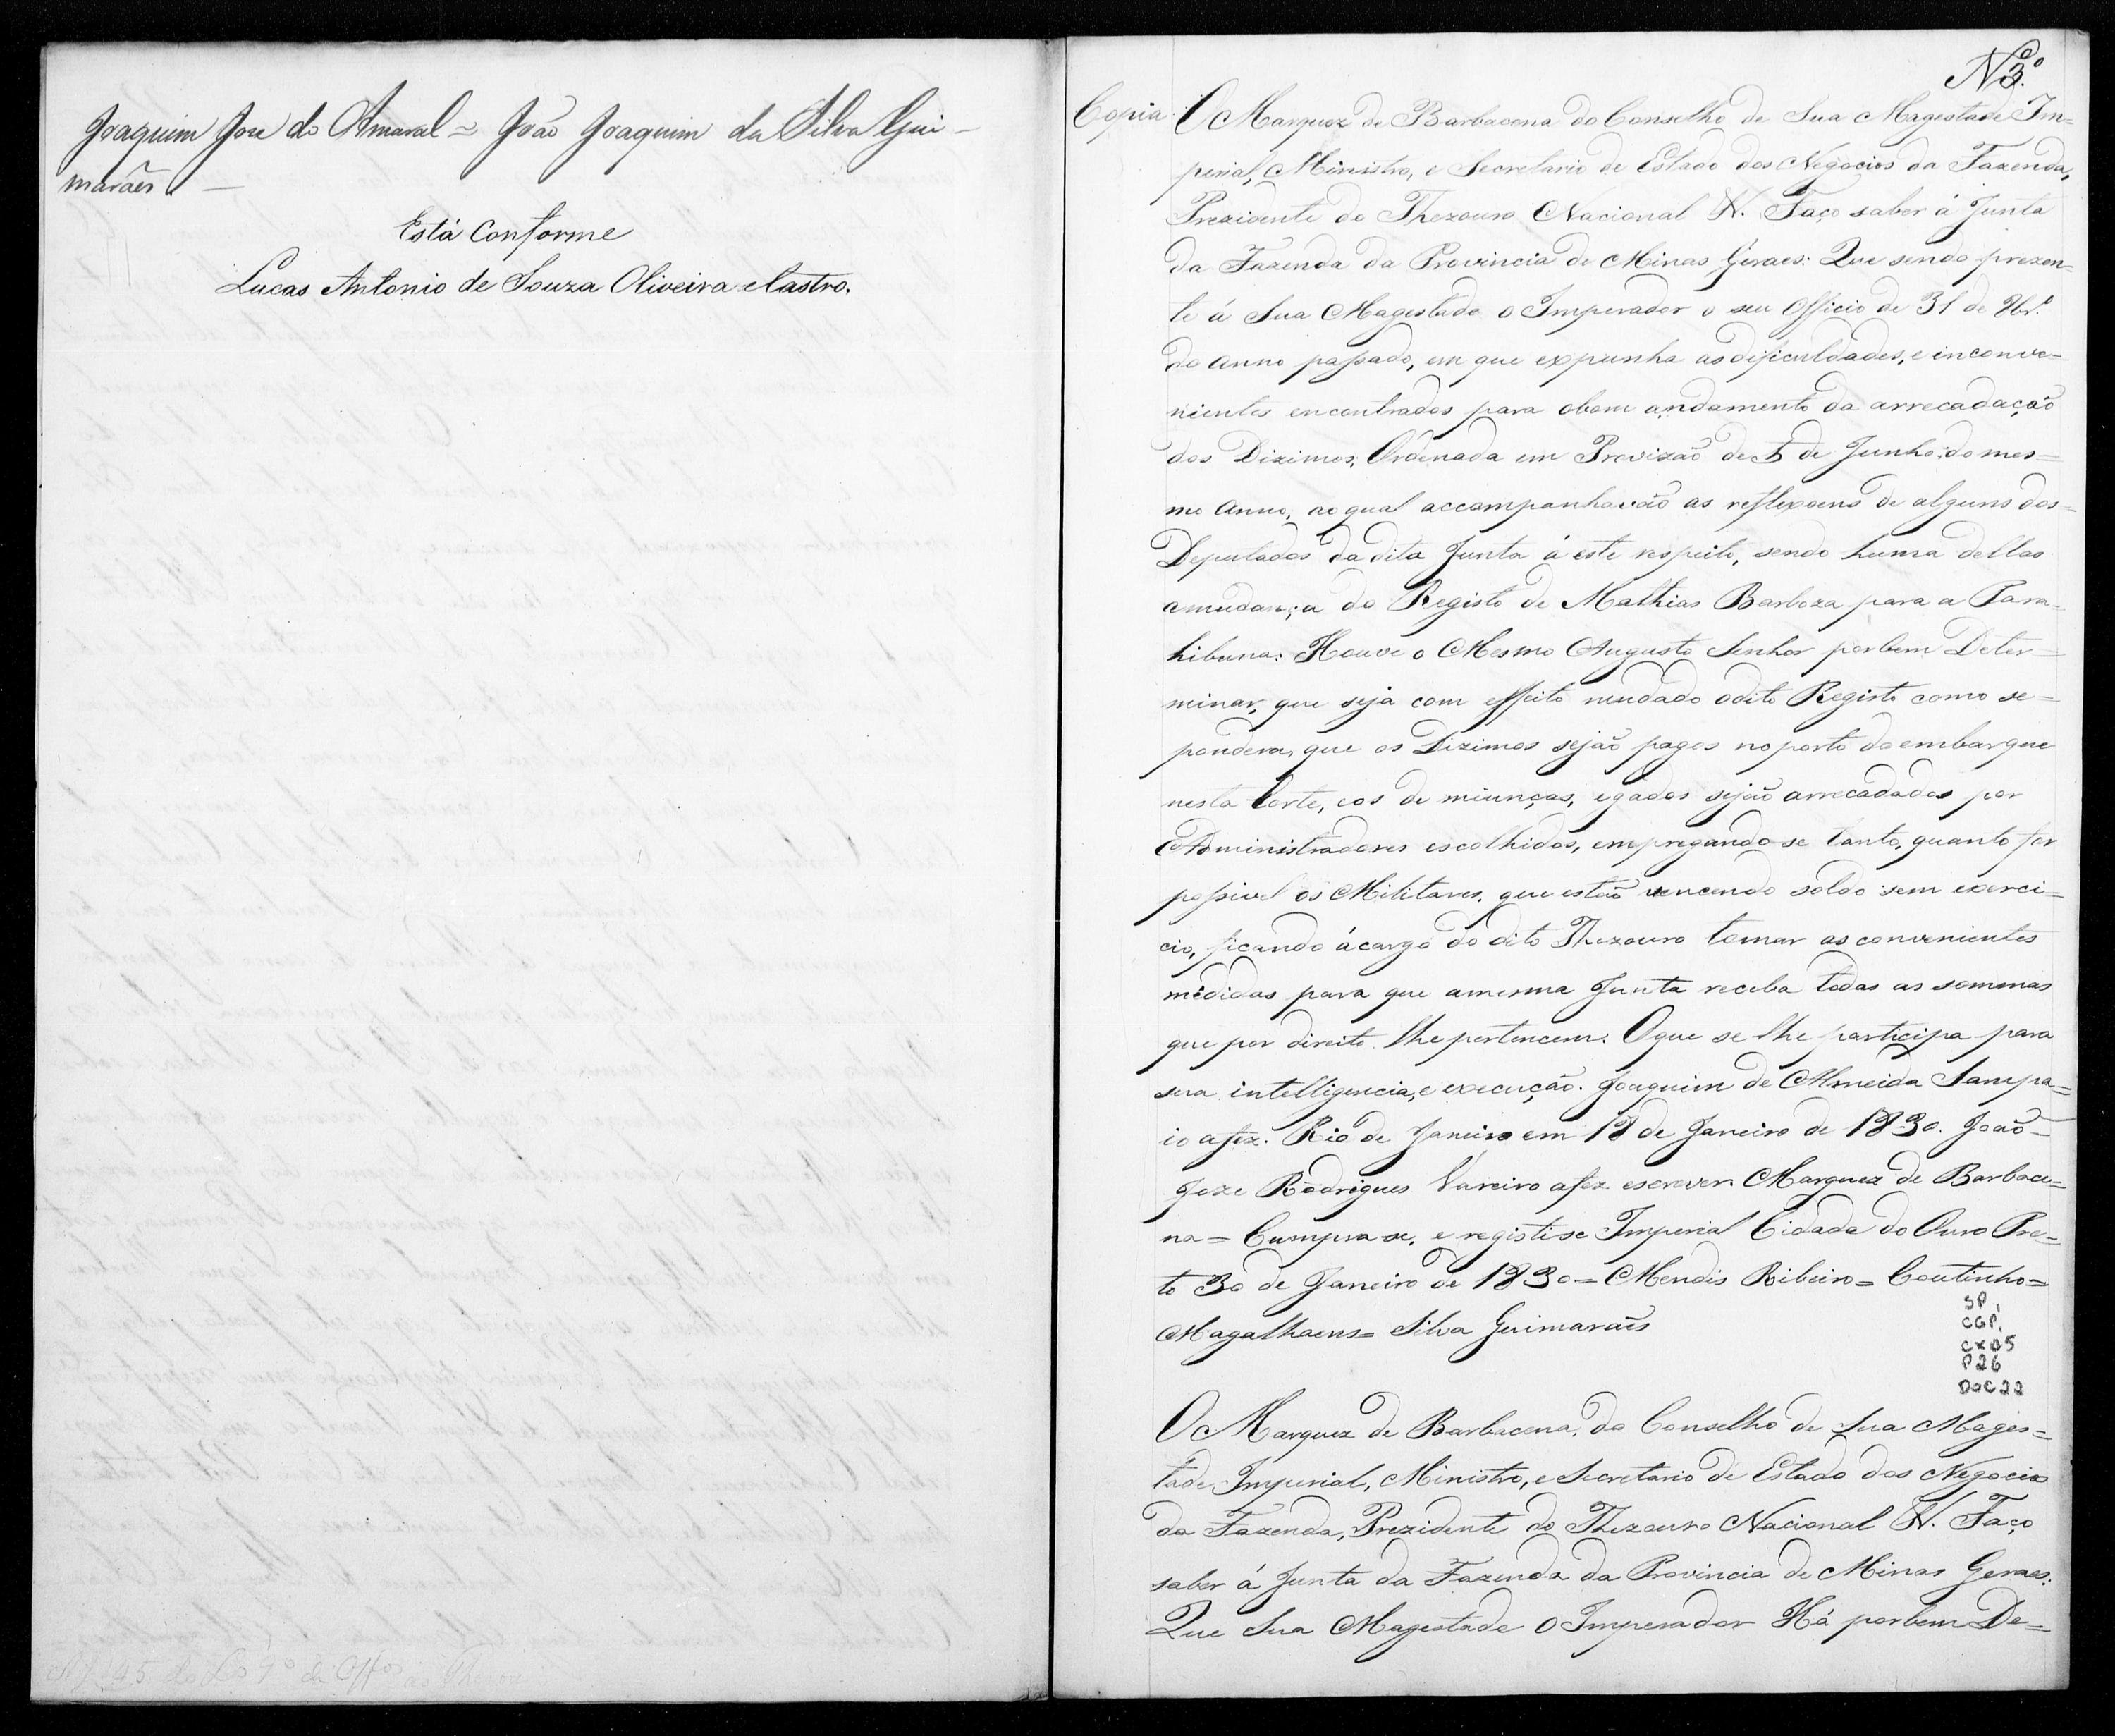 Joaquim Jose do Amaral = João Joaquim da Silva Gui-
marães. —
Está Conforme
Lucas Antonio de Souza Oliveira e Castro.
N.º 3.º
Copia. O Marquez de Barbacena do Conselho de Sua Magestade Im-
perial, Ministro, e Secretario de Estado dos Negocios da Fazenda,
Prezidente do Thezouro Nacional &. Faço saber á Junta
da Fazenda da Provincia de Minas Geraes: Que sendo prezen-
te á Sua Magestade o Imperador o seu Officio de 31 de
do anno passado, em que expunha as dificuldades, e inconve-
nientes encontrados para obom andamento da arrecadação
dos Dizimos, Ordenada em Provizaõ de 5 de Junho do mes-
mo anno, ao qual accompanhavão as reflexoens de alguns dos
Deputados da dita Junta á este respeito, sendo huma dellas
amudança do Registo de Mathias Barboza para a Para-
hibuna: Houve o Mesmo Augusto Senhor porbem Deter-
minar, que seja com effeito mudado odito Registo como se-
pondera, que os Dizimos sejão pagos no porto do embarque
nesta Corte, eos de miunças, egados sejão arrecadados por
Administradores escolhidos, empregando-se tanto, quanto for
possivel os Militares, que estão vencendo soldo sem exerci-
cio, ficando ácargo do dito Thezouro tomar as convenientes
medidas para que amesma Junta receba todas as sommas
que por direito lhe pertencem. Oque se lhe participa para
sua intelligencia, e execução. Joaquim de Almeida Sampa-
io afez. Rio de Janeiro em 18 de Janeiro de 1830. João
Joze Rodrigues Vareiro afez escrever. Marquez de Barbace-
na = Cumpra-se, e registe-se Imperial Cidade do Ouro Pre-
to 30 de Janeiro de 1830 = Mendis Ribeiro = Coutinho =
Magalhaens = Silva Guimarães
SP,
CGP,
CX05
P26
DOC22
O Marquez de Barbacena, do Conselho de Sua Mages-
tade Imperial, Ministro, e Secretario de Estado dos Negocios
da Fazenda, Prezidente do Thezouro Nacional &. Faço
saber á Junta da Fazenda da Provincia de Minas Geraes:
Que Sua Magestade O Imperador Há porbem De-